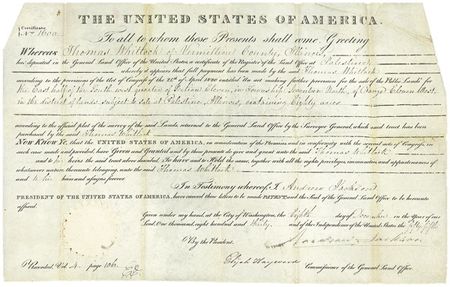 THE UNITED STATES OF AMERICA.
Certificate
No. 1600
To all to whom these Presents shall come Greeting
Whereas Thomas Whitlock of Hamilton County, Illinois
has deposited in the General Land Office of the United States, a certificate of the Register of the Land Office at Palestine
whereby it appears that full payment has been made by the said Thomas Whitlock
according to the provisions of the Act of Congress of the 24th of April 1820 entitled "An act making further provision for the sale of the Public Lands" for
the East half of the South West quarter of Section Eleven, in Township Seven North, of Range Eleven West,
in the district of Lands subject to sale at Palestine, Illinois, containing Eighty acres
according to the official plat of the survey of the said Lands, returned to the General Land Office by the Surveyor General, which said tract has been
purchased by the said Thomas Whitlock
NOW KNOW YE, that the UNITED STATES OF AMERICA, in consideration of the Premises, and in conformity with the several acts of Congress, in
such case made and provided have Given and Granted and by these presents do give and grant unto the said Thomas Whitlock
and to his heirs the said tract above described: To Have and to Hold the same, together with all the rights, privileges, immunities, and appurtenances of
whatsoever nature, thereunto belonging, unto the said Thomas Whitlock
and to his heirs and assigns forever
In Testimony whereof I, Andrew Jackson
PRESIDENT OF THE UNITED STATES OF AMERICA, have caused these letters to be made PATENT and the Seal of the General Land Office to be hereunto
affixed.
Given under my hand at the City of Washington, the Eighth day of November in the Year of our
Lord One thousand, eight hundred and thirty and of the Independence of the United States the fifty fifth
By the President, Andrew Jackson
Elijah Hayward Commissioner of the General Land Office.
Recorded, Vol. 4 page 106